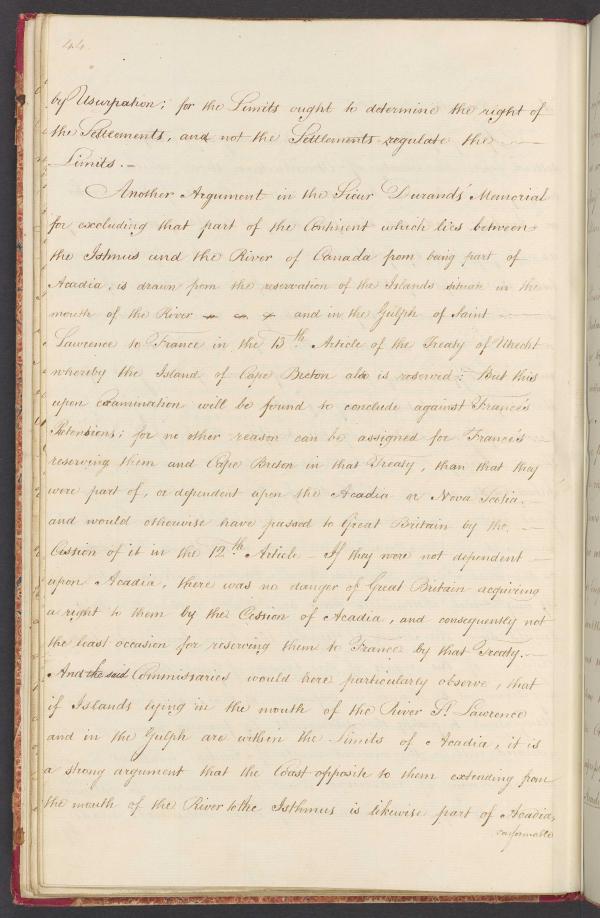 44.
by Usurpation; for the Limits ought to determine the right of
the Settlements, and not the Settlements regulate the
Limits.-
Another Argument in the Sieur Durands' Memorial
for excluding that part of the Continent which lies between
the Istmus and the River of Canada from being part of
Acadia, is drawn from the reservation of the Islands situate in the
mouth of the River and in the Gulph of Saint
Lawrence to France in the 13th Article of the Treaty of Utrecht
whereby the Island of Cape Breton also is reserved: But this
upon examination will be found to conclude against France's
Pretensions; for no other reason can be assigned for France's
reserving them and Cape Breton in that Treaty, than that they
were part of, or dependent upon the Acadia or Nova Scotia.
and would otherwise have passed to Great Britain by the
Cession of it in the 12th Article - If they were not dependent
upon Acadia, there was no danger of Great Britain acquiring
a right to them by the Cession of Acadia, and consequently not
the least occasion for reserving them to France by that Treaty.-
And the said Commissaries would here particularly observe, that
if Islands lying in the mouth of the River St. Lawrence
and in the Gulph are within the Limits of Acadia, it is
a strong argument that the Coast opposite to them extending from
the mouth of the River to the Isthmus is likewise part of Acadia,
conformable